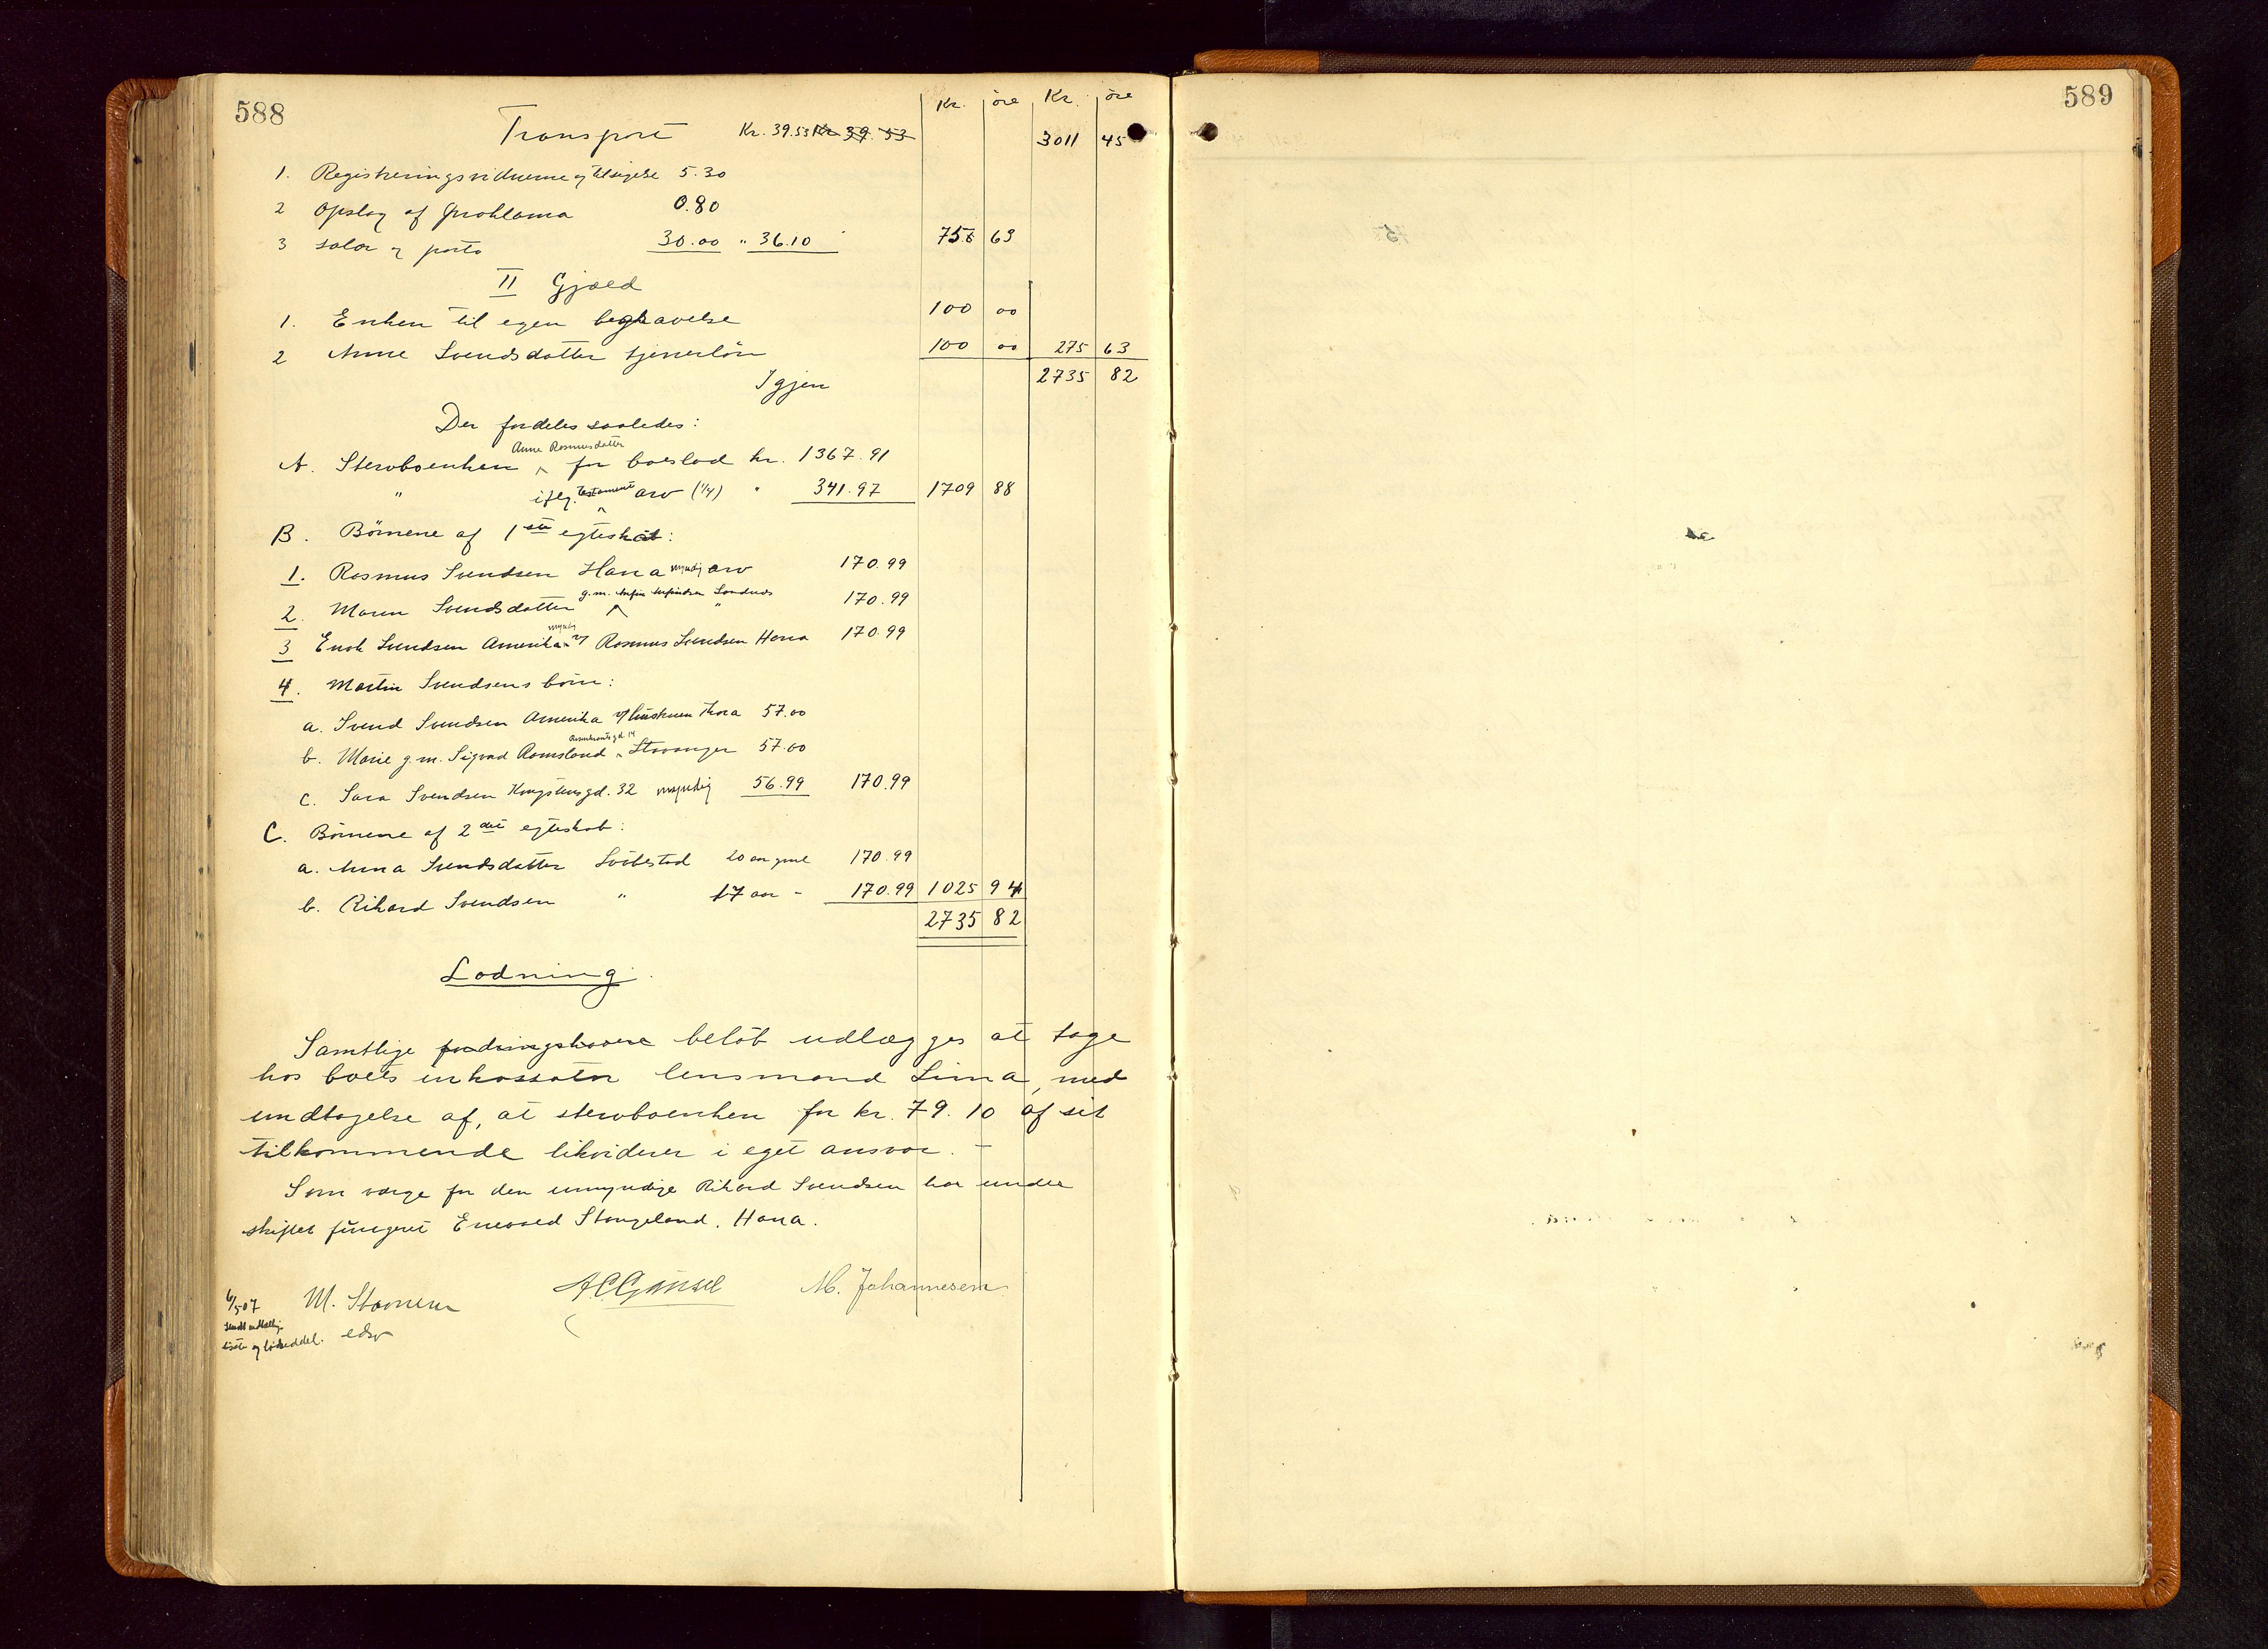 588
Kr. öre Kr. öre
Transport Kr. 39.53 Kr 39.53 3011 45
1. Registreringsvidnerne og tilsigelse 5.30
2 Opslag af proklama 0.80
3 salær og porto 30.00 " 36.10 75.6 63
II Gjæld
1. Enken til egen begravelse 100 00
2 Anne Svendsdatter tjenerlön 100 00 275 63
Igjen 2735 82
Der fordeles saaledes:
Anne Rasmusdatter
A. Stervboenken for boeslod kr. 1367.91
" iflg. testament arv (1/4) " 341.97 1709 88
B. Börnene af 1ste egteskab:
1. Rasmus Svendsen Hana myndig arv 170.99
2. Maren Svendsdatter g.m. " 170.99
3 Enok Svendsen Amerika myndig v/ Rasmus Svendsen Hana 170.99
4. Martin Svendsens börn:
a. Svend Svendsen Amerika v/ Thora 57.00
b. Marie g.m. Sigvad Ramsland Stavanger 57.00
c. Sara Svendsen Kongstensgd. 32 myndig 56.99 170.99
C. Börnene af 2det egteskab:
a. Anna Svendsdatter 20 aar gml 170.99
b. Rikard Svendsen " 17 aar - 170.99 1025 94
2735 82
Lodning.
Samtlige fordringshavere belöb udlægges at tage
hos boets inkassator lensmand Lima, med
undtagelse af, at stervboenken for kr. 79.10 af sit
tilkommende likviderer i eget ansvar. –
Som værge for den umyndige Rikard Svendsen har under
skiftet fungeret Enevald Stangeland, Hana.
6/5 07 M. Stornem A C Gjönsel M. Johannesen
sendt
liste og lodseddel. edsv
589